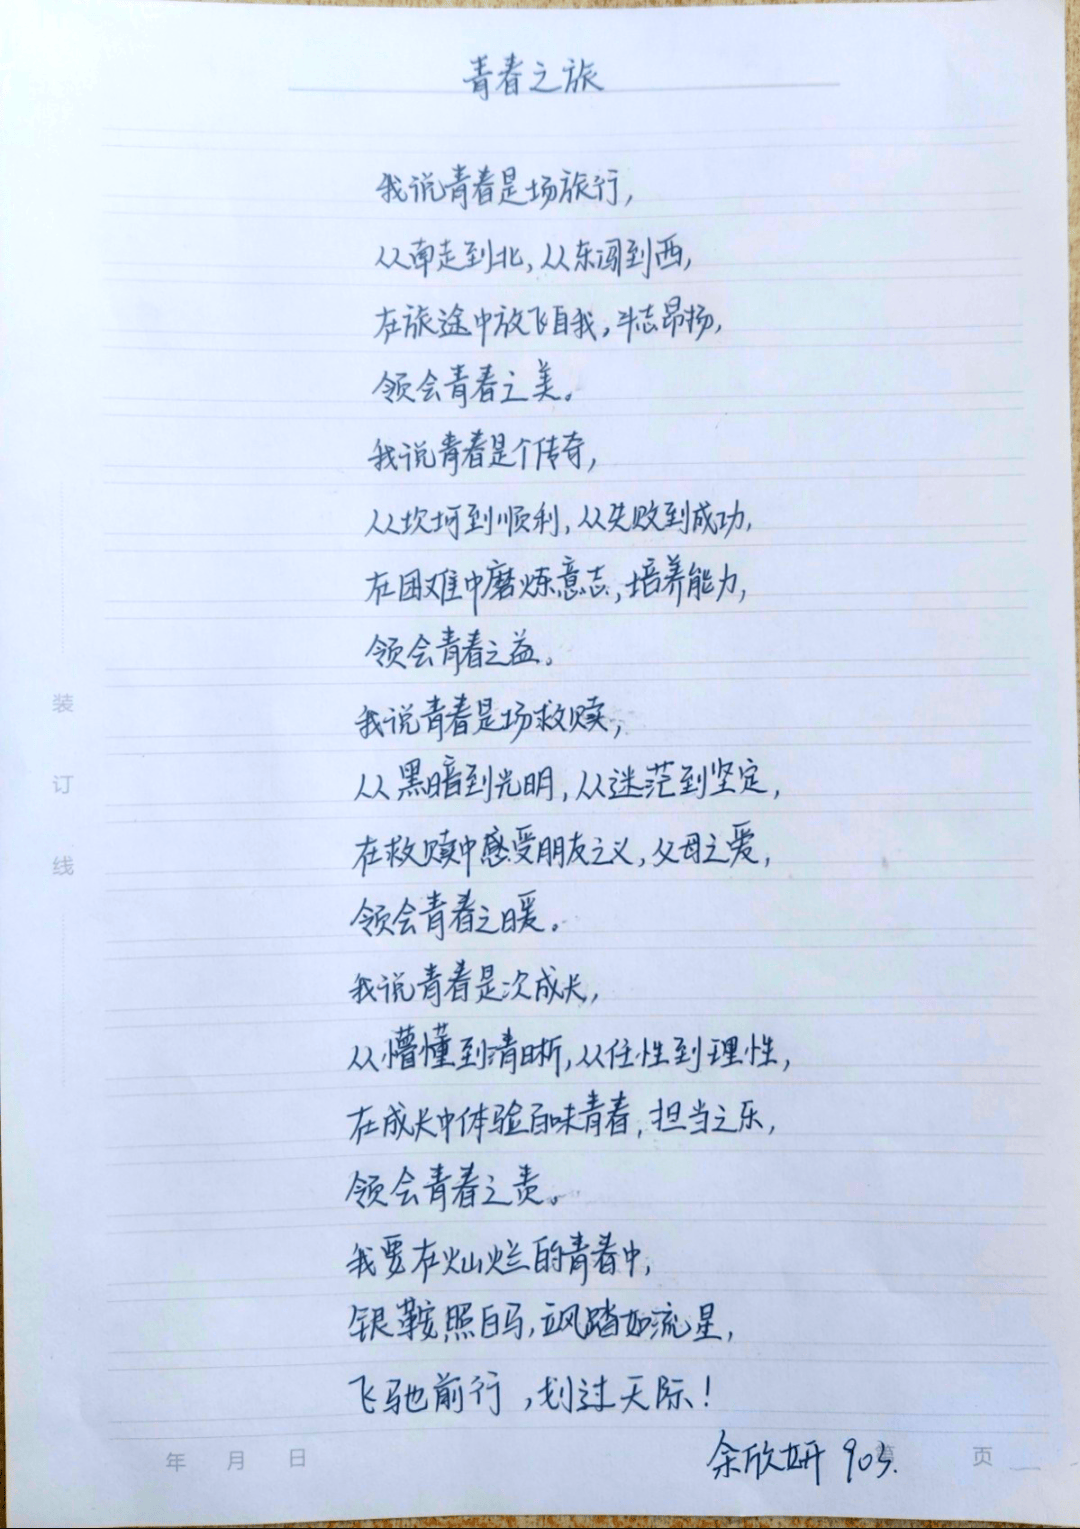 青春之旅
我说青春是场旅行,
从南走到北,从东闯到西,
在旅途中放飞自我,斗志昂扬,
领会青春之美。
我说青春是个传奇,
从坎坷到顺利,从失败到成功,
在困难中磨炼意志,培养能力,
领会青春之益。
我说青春是场救赎,
从黑暗到光明,从迷茫到坚定,
在救赎中感受朋友之义,父母之爱,
领会青春之暖。
我说青春是次成长,
从懵懂到清晰,从任性到理性,
在成长中体验百味青春,担当之乐,
领会青春之责。
我要在灿烂的青春中,
银鞍照白马,飒踏如流星,
飞驰前行,划过天际!
余欣妍 903.
装
订
线
年 月 日 第 页